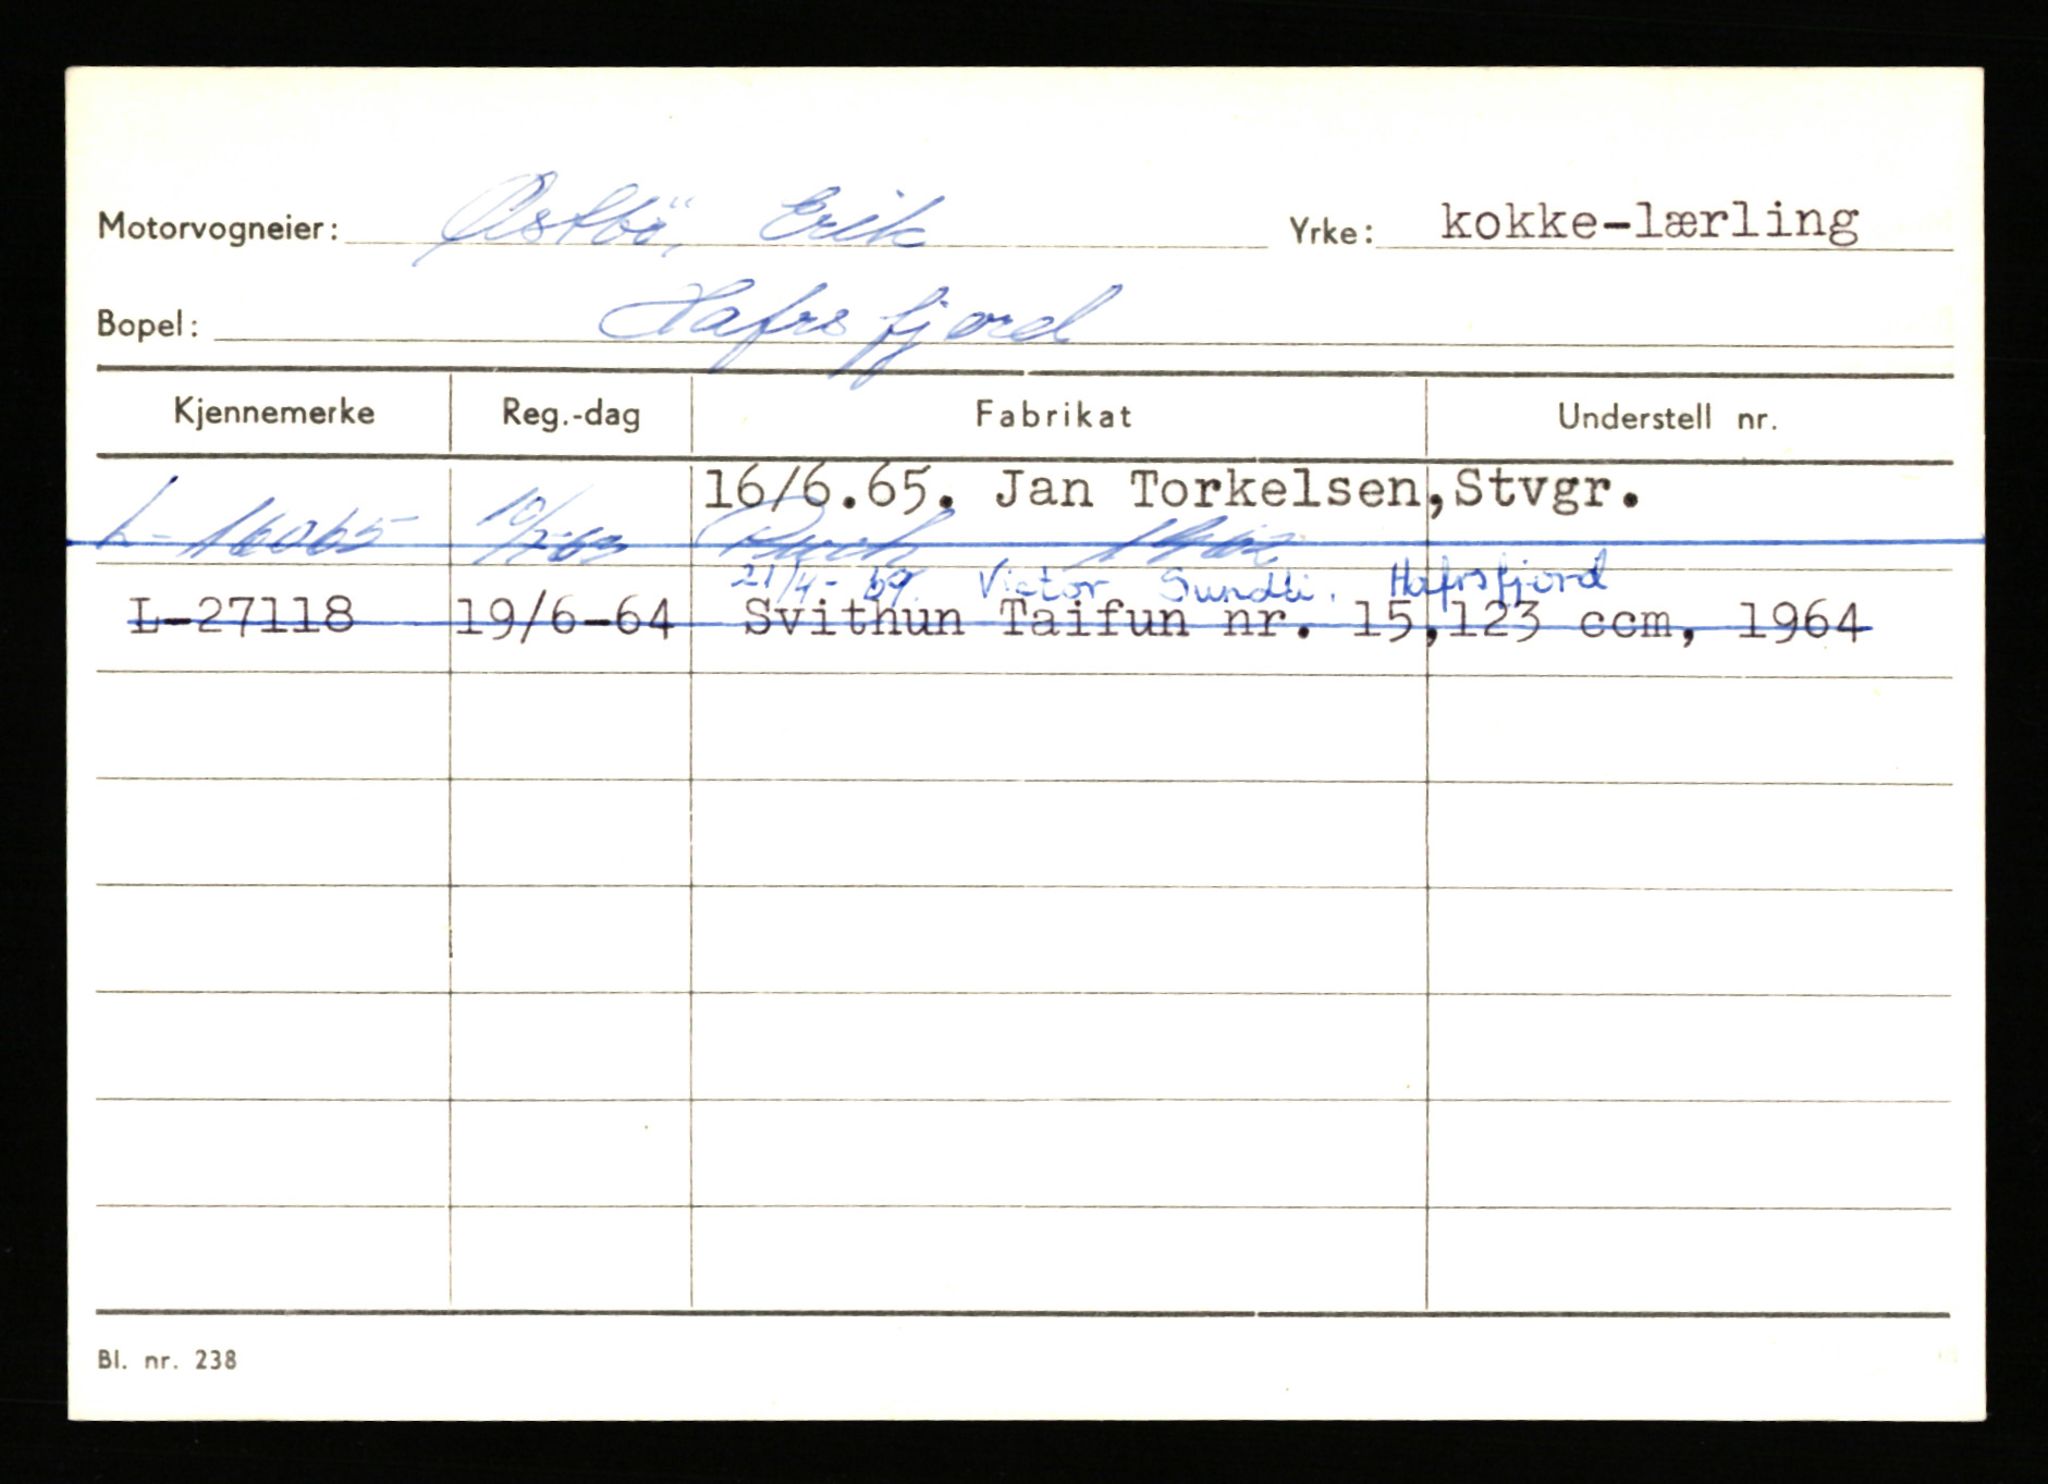 Motorvogneier: Østbö, Erik Yrke: kokke-lærling
Bopel: Hafrsfjord
Kjennemerke Reg.-dag Fabrikat Understell nr.
16/6.65. Jan Torkelsen, Stvgr.
L-16065 10/7-63 Puch 1962
21/4-69. Victor Sundli. Hafrsfjord
L-27118 19/6-64 Svithun Taifun nr. 15,123 ccm, 1964
Bl. nr. 238